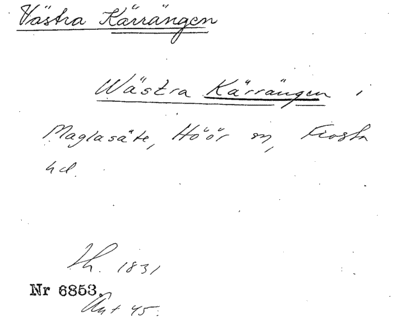 Västra Kärrängen
Wästra Kärrängen i
Maglasäte, Höör sn, Frosta
hd.
1831
Nr 6853.
Akt 45.